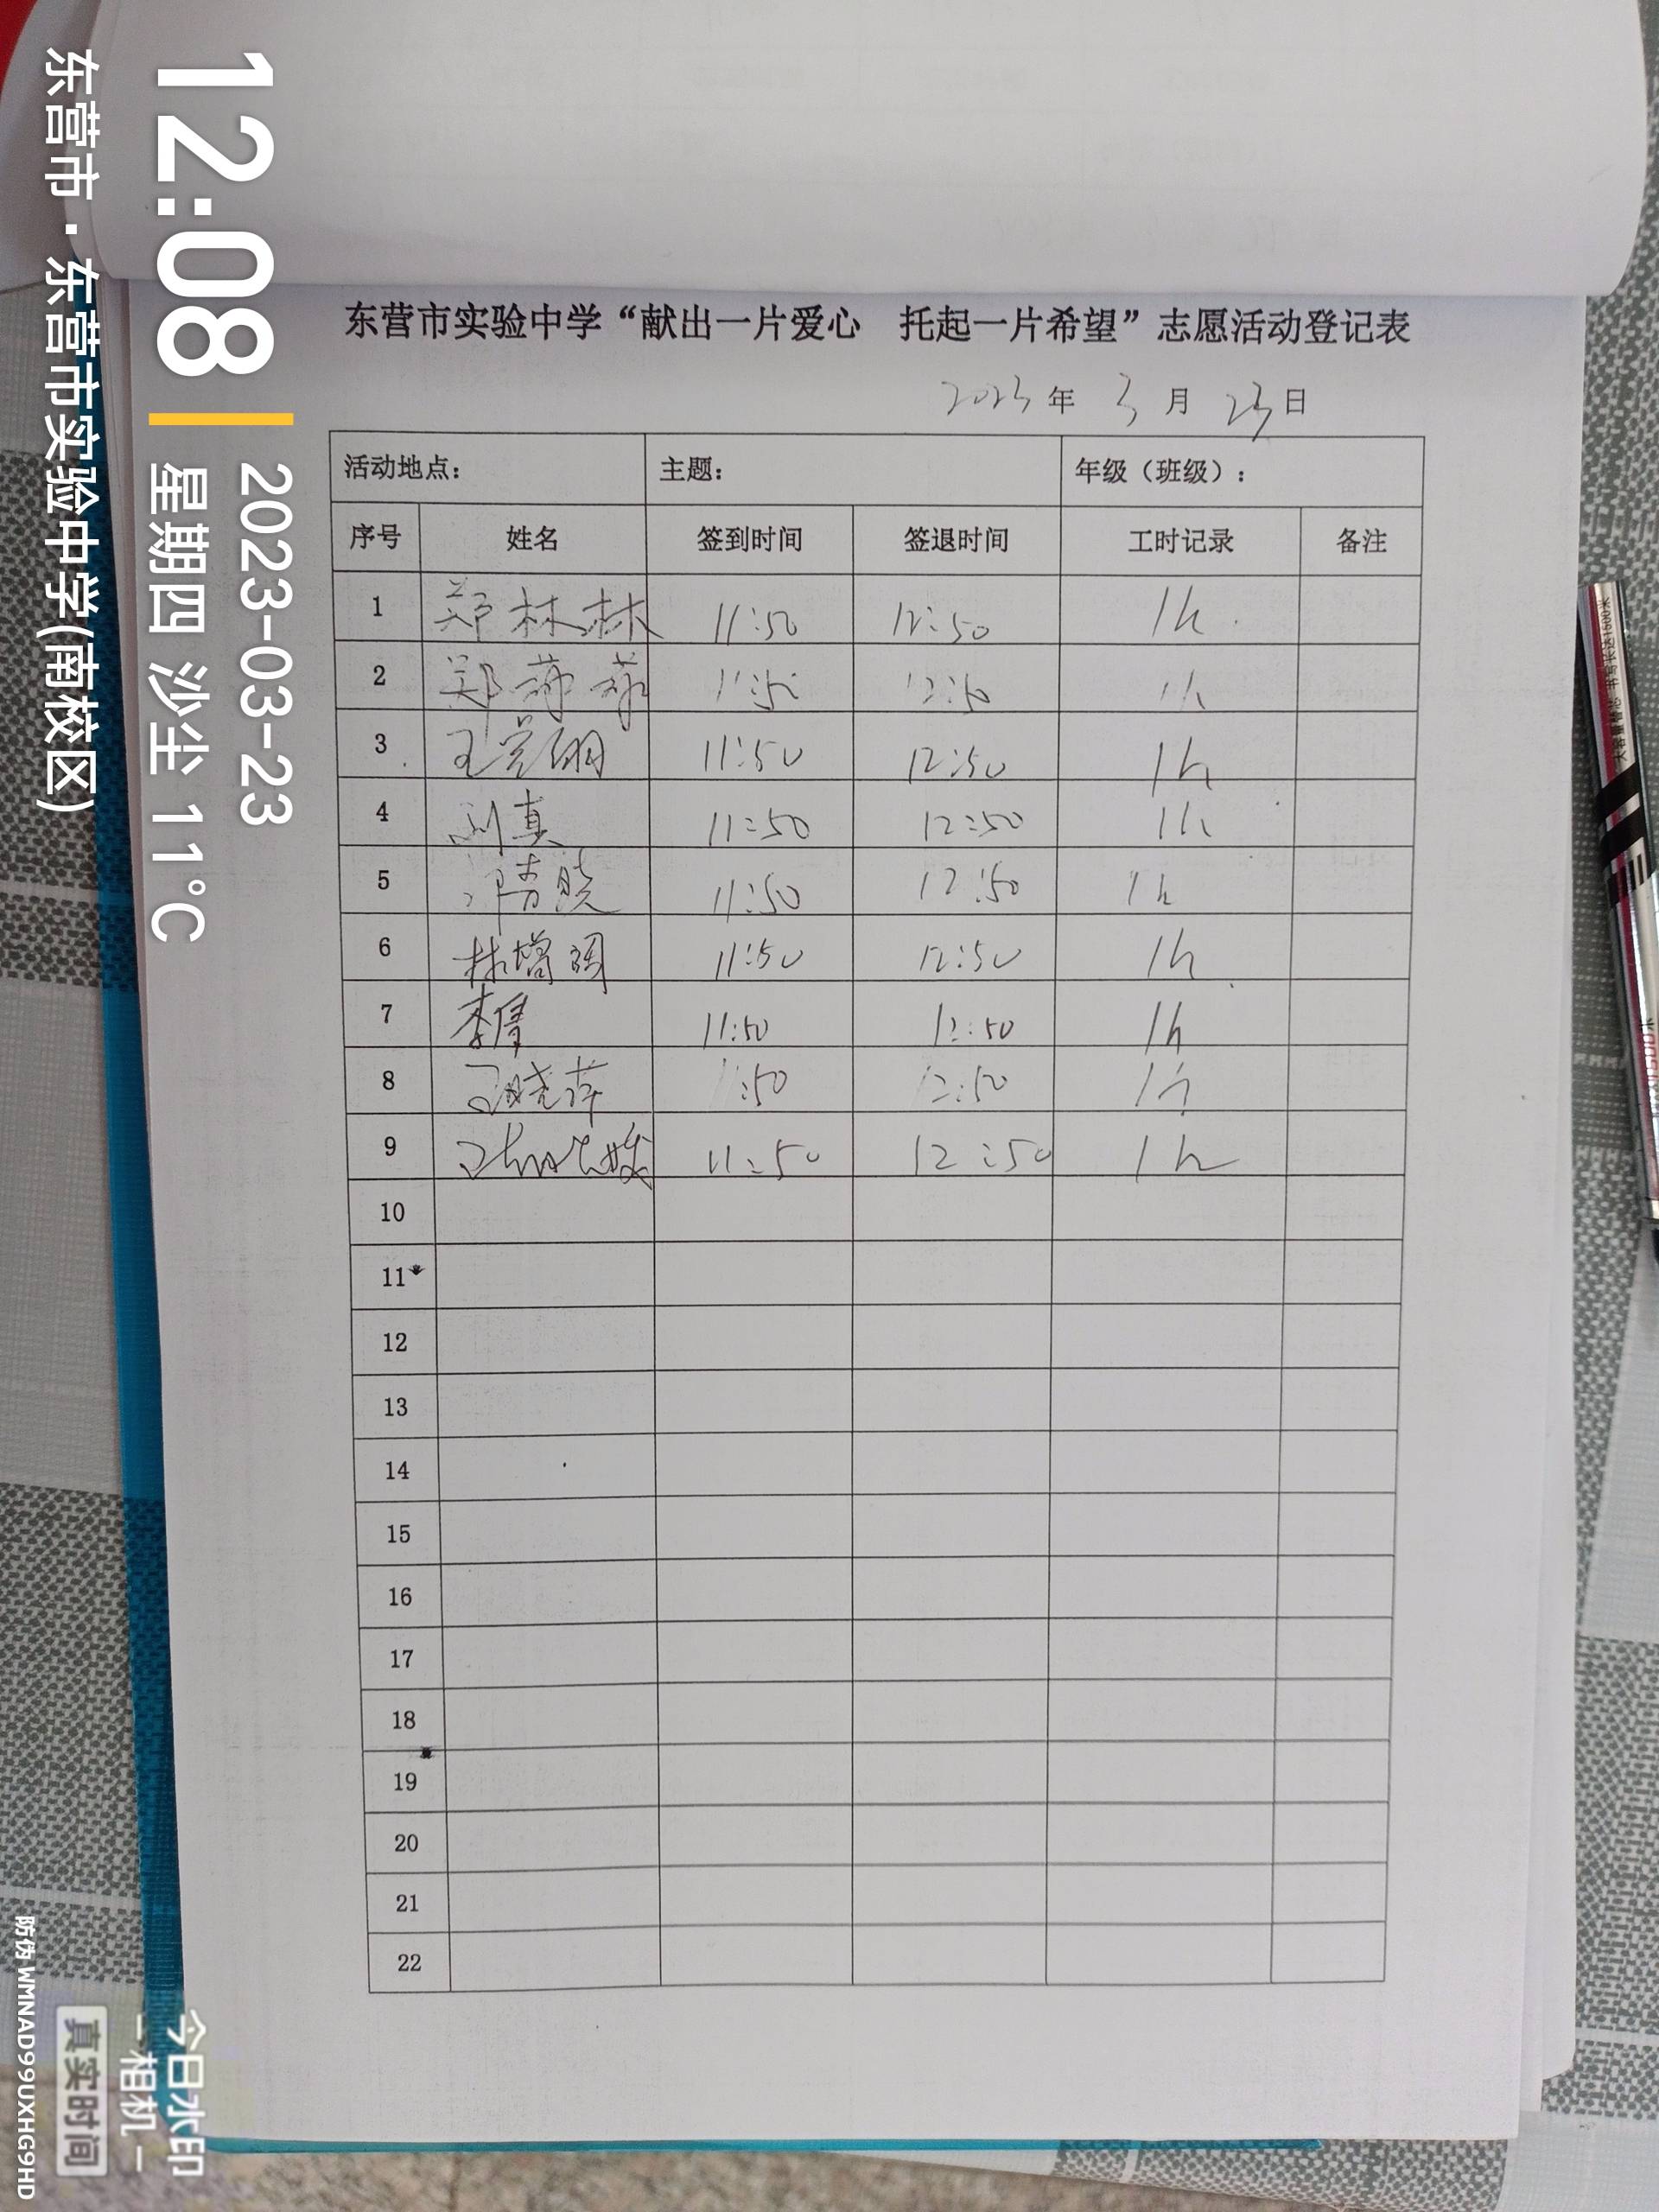 东营市实验中学“献出一片爱心　托起一片希望”志愿活动登记表
2023 年 3 月 23 日
活动地点： 主题： 年级（班级）：
序号 姓名 签到时间 签退时间 工时记录 备注
1 郑林林 11:50 12:50 1h
2 郑 11:50 12:50 1h
3 王 11:50 12:50 1h
4 刘真 11:50 12:50 1h
5 晓 11:50 12:50 1h
6 林增强 11:50 12:50 1h
7 李倩 11:50 12:50 1h
8 王晓萍 11:50 12:50 1h
9 王 11:50 12:50 1h
10
11
12
13
14
15
16
17
18
19
20
21
22
12:08
2023-03-23
星期四 沙尘 11°C
东营市·东营市实验中学(南校区)
今日水印
相机
真实时间
防伪 WMNAD99UXHG9HD